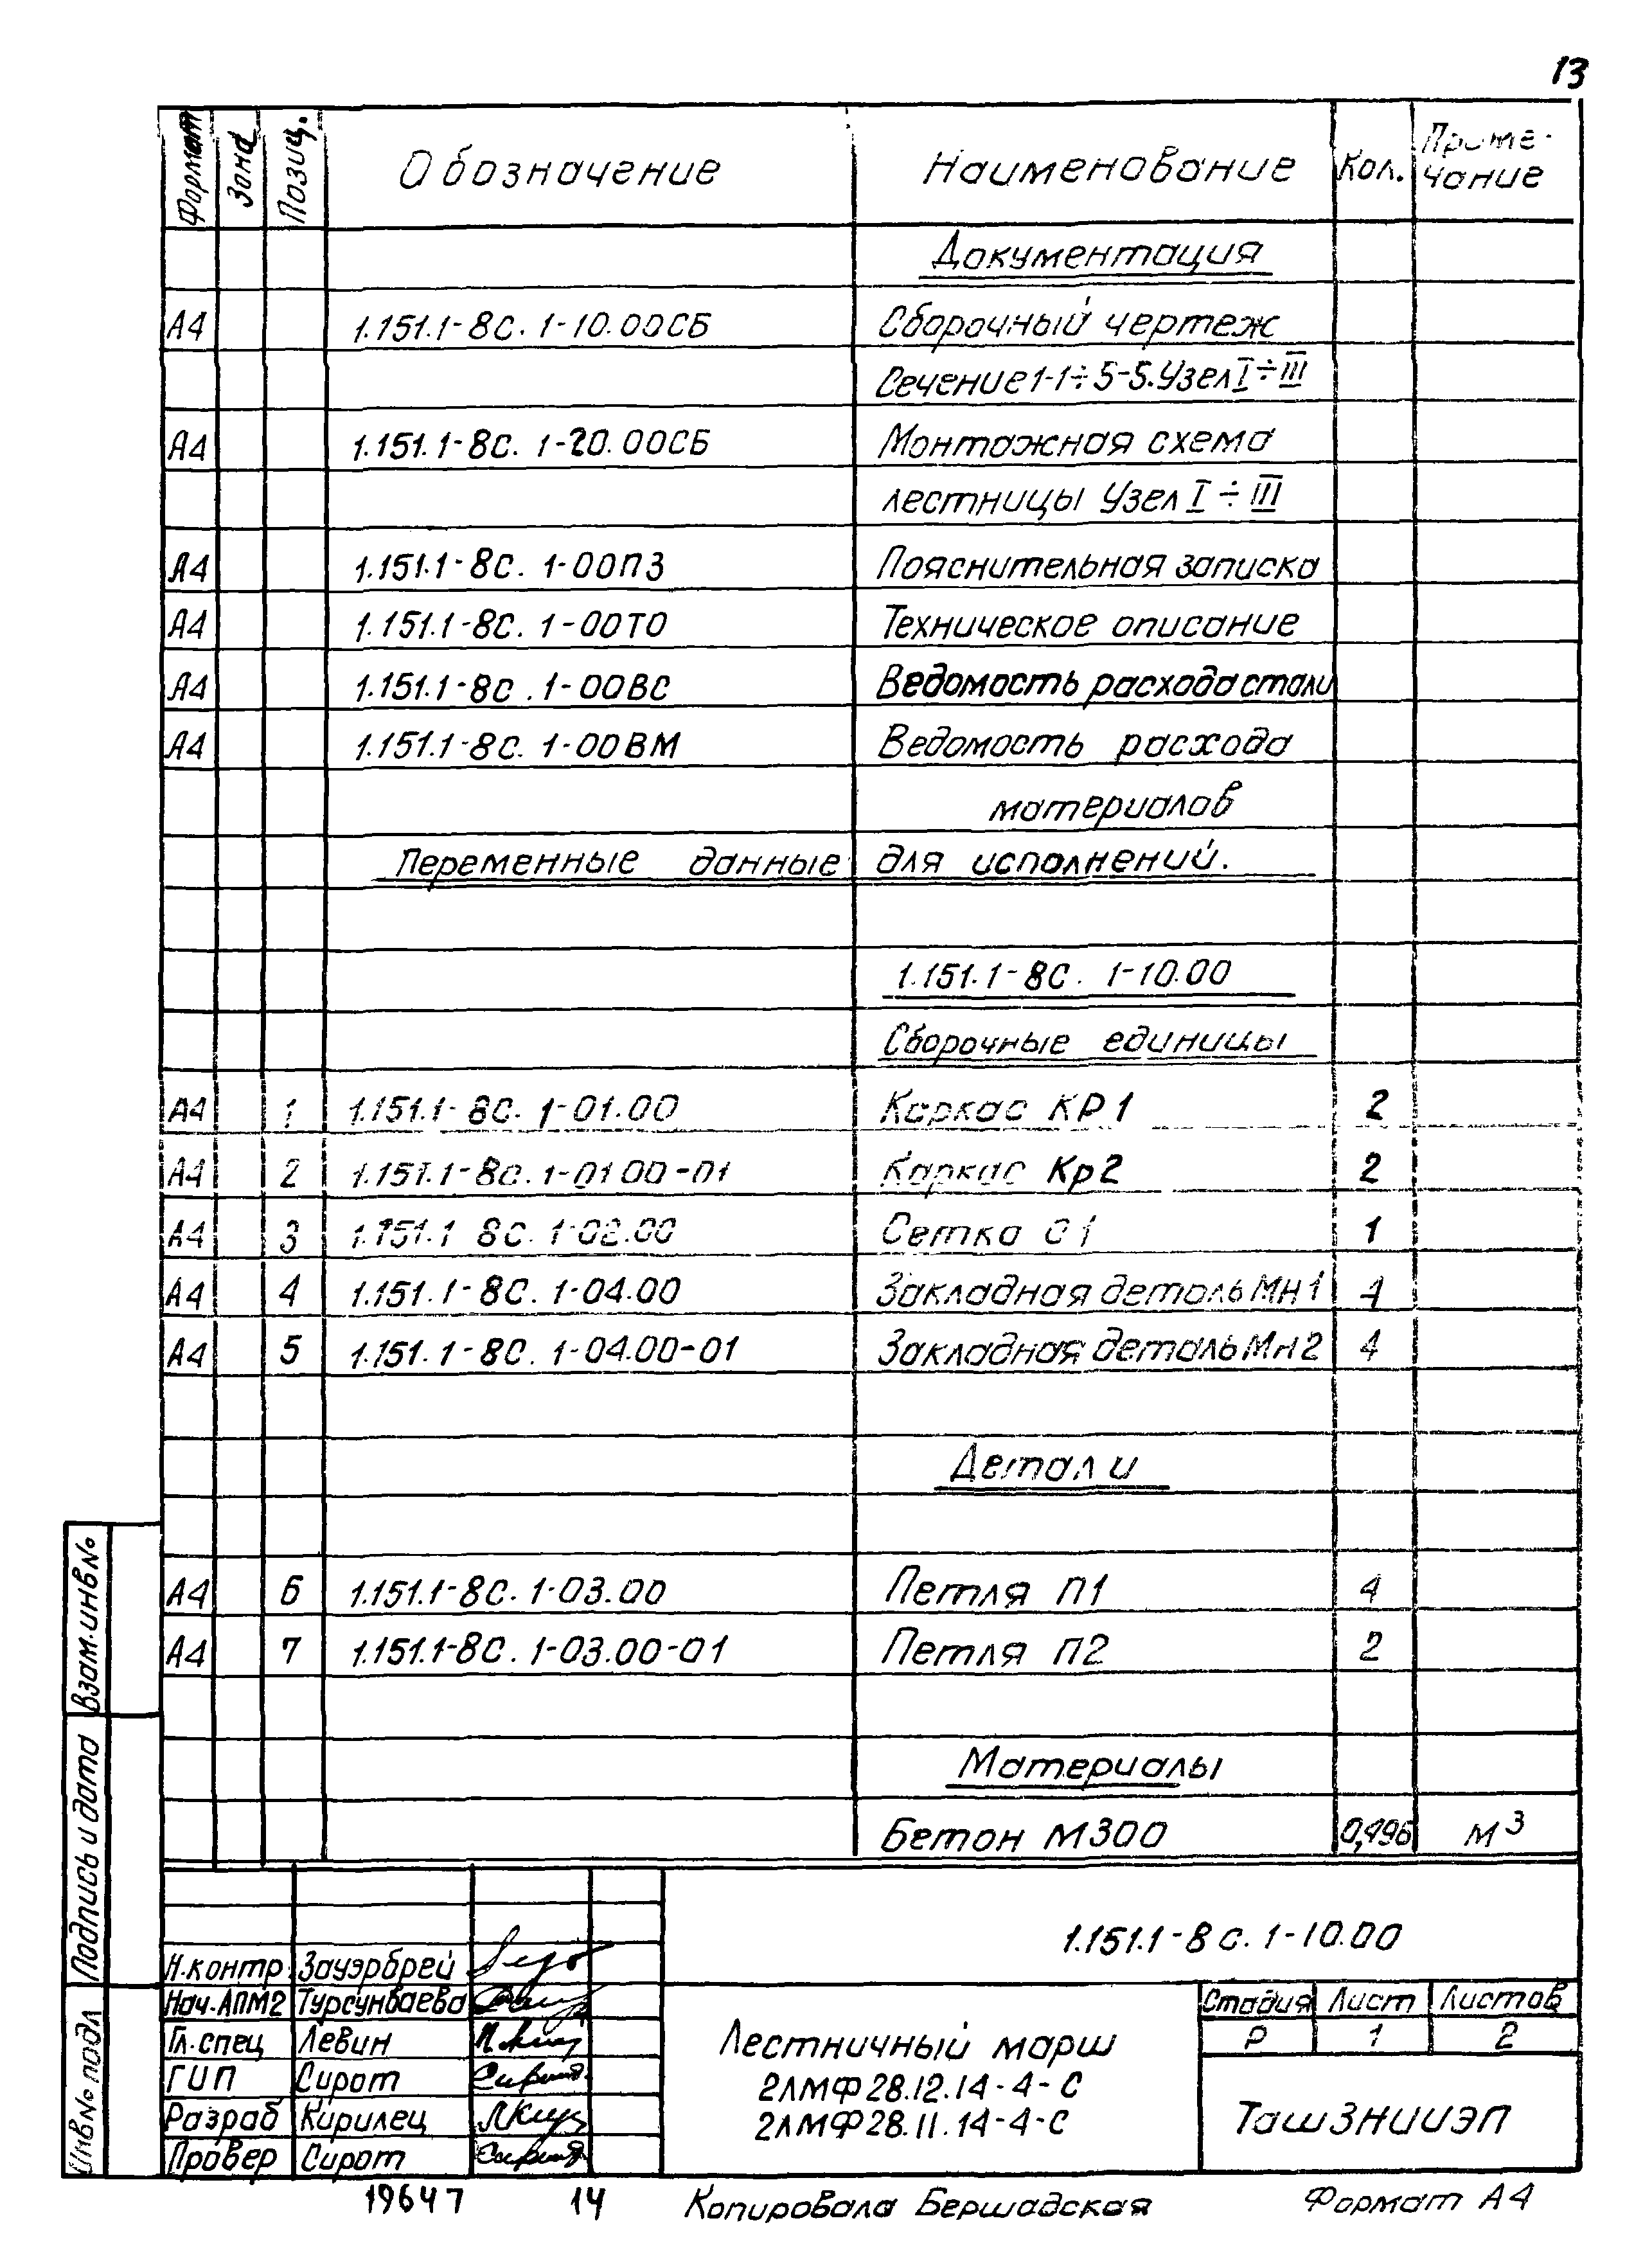 13
Формат Зона Позиц. Обозначение Наименование Кол. Приме-
чание
Документация
А4 1.151.1-8С. 1-10.00СБ Сборочный чертеж
Сечение 1-1÷5-5. Узел I÷III
А4 1.151.1-8С. 1-20.00СБ Монтажная схема
лестницы Узел I÷III
А4 1.151.1-8С. 1-00ПЗ Пояснительная записка
А4 1.151.1-8С. 1-00ТО Техническое описание
А4 1.151.1-8С. 1-00ВС Ведомость расхода стали
А4 1.151.1-8С. 1-00ВМ Ведомость расхода
материалов
Переменные данные для исполнений.
1.151.1-8С. 1-10.00
Сборочные единицы
А4 1 1.151.1-8С. 1-01.00 Каркас КР1 2
А4 2 1.151.1-8С. 1-01 00-01 Каркас Кр2 2
А4 3 1.151.1 8С. 1-02.00 Сетка С1 1
А4 4 1.151.1-8С. 1-04.00 Закладная деталь МН1 4
А4 5 1.151.1-8С. 1-04.00-01 Закладная деталь Мн2 4
Детали
А4 6 1.151.1-8С. 1-03.00 Петля П1 4
А4 7 1.151.1-8С. 1-03.00-01 Петля П2 2
Материалы
Бетон М300 0,496 м³
Взам.инв№
Подпись и дата
Инв№ подл
1.151.1-8С. 1-10.00
Н.контр. Зауэрбрей
Нач.АПМ2 Турсунбаева
Гл.спец Левин
ГИП Сирот
Разраб Кирилец
Провер Сирот
Лестничный марш
2ЛМФ28.12.14-4-С
2ЛМФ28.11.14-4-С
Стадия Лист Листов
Р 1 2
ТашЗНИИЭП
19647 14 Копировала Бершадская Формат А4